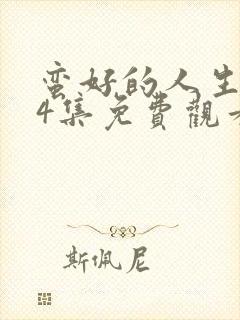 蛮好的人生
4集免費觀看
斯佩尼